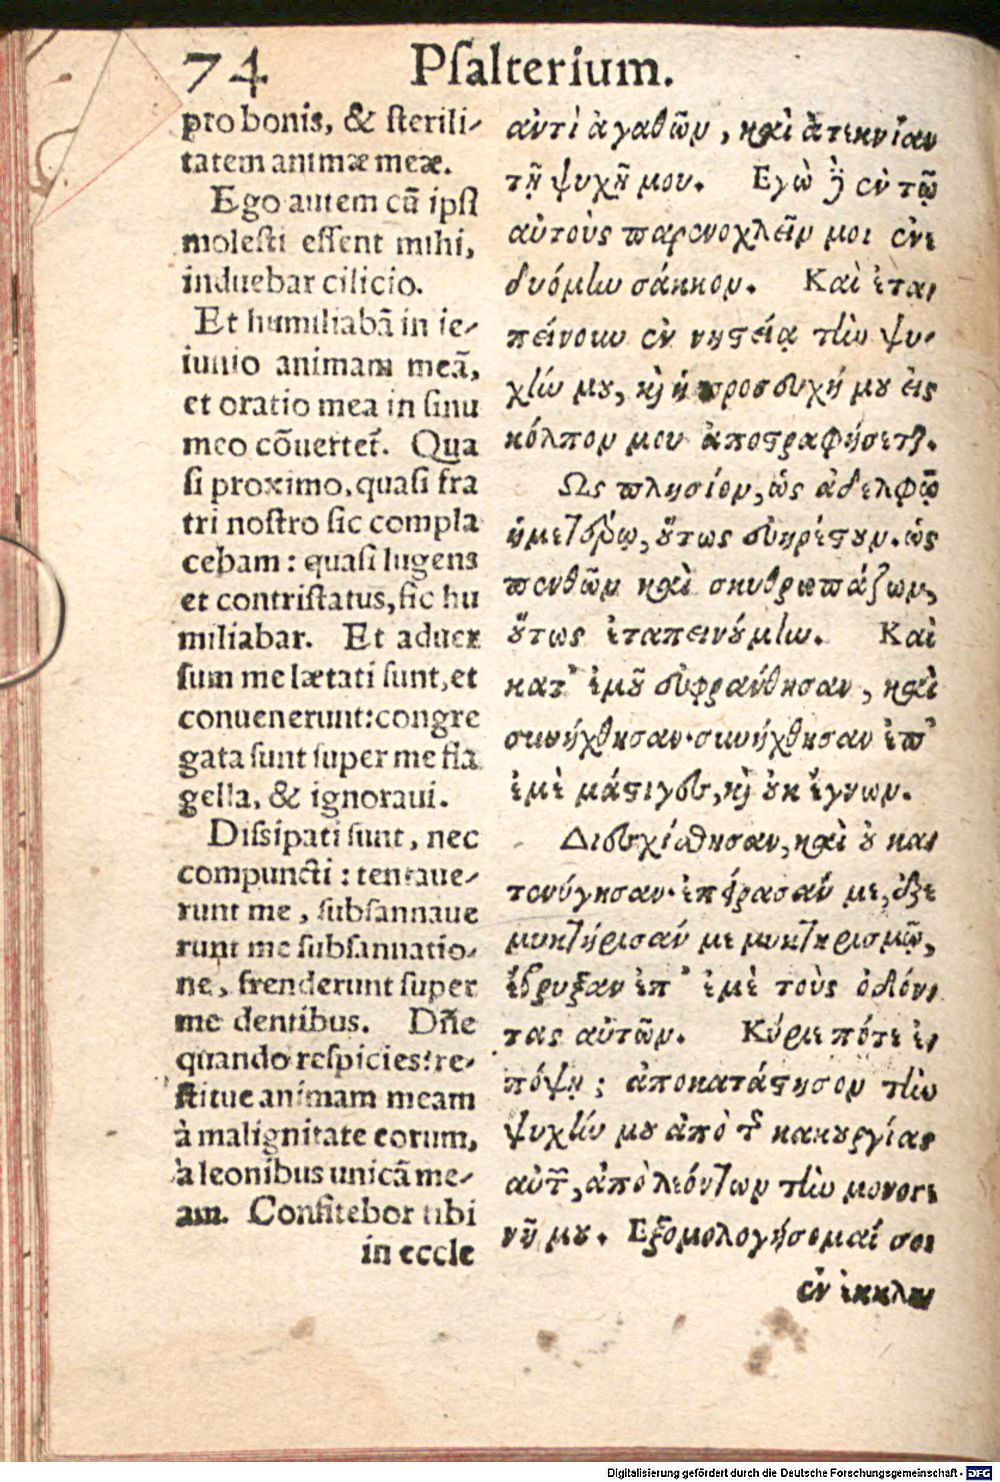 74 Pſalterium.
pro bonis, & ſterili-
tatem animæ meæ.
Ego autem cũ ipſi
moleſti eſſent mihi,
induebar cilicio.
Et humiliabã in ie-
iunio animam meã,
et oratio mea in ſinu
meo cõuertet̃. Qua
ſi proximo, quaſi fra
tri noſtro ſic compla
cebam: quaſi lugens
et contriſtatus, ſic hu
miliabar. Et aduer
ſum me lætati ſunt, et
conuenerunt: congre
gata ſunt super me fla
gella, & ignoraui.
Diſsipati ſunt, nec
compuncti: tentaue-
runt me, ſubſannaue
runt me ſubſannatio-
ne, frenderunt ſuper
me dentibus. Dñe
quando reſpicies: re-
ſtitue animam meam
à malignitate eorum,
à leonibus unicã me-
am. Confitebor tibi
in eccle
αὐτὶ ἀγαθῶν, καὶ ἀτεκνίαν
τῇ ψυχῇ μου. Εγὼ ϳ ἐν τῷ
αὐτοὺς παρενοχλεῖν μοι ἐνε
δυόμlω σάκκον. Καὶ ἐτα-
πείνουυ ἐν νηϛείᾳ τlὼ ψυ-
χlώ μȣ, κ̀ ἡ προσευχή μȣ εἰς
κόλπον μου ἀποϛραφήσετ.
Ως πλησίον, ὡς ἀδελφῷ
ἡμετέρῳ, ȣ̔́τως εὐηρέϛȣν. ὡς
πενθῶν καὶ σκυθρωπάζων,
ȣ̔́τως ἐταπεινȣ́μlω. Καὶ
κατ᾿ ἐμȣ͂ εὐφράνθησαν, καὶ
συνήχθησαν· συνήχθησαν ἐπ᾿
ἐμὲ μάϛιγες, κ̀ ȣ̓κ ἔγνων.
Διεσχίσθησαν, καὶ ȣ̓ κα-
τενύγησαν· ἐπείρασάν με, ἐξε
μυκτήρισάν με μυκτηρισμῷ,
ἔβρυξαν ἐπ᾿ ἐμὲ τοὺς ὀδόν-
τας αὐτῶν. Κύριε πότε ἐ-
πόψῃ; ἀποκατάϛησον τlὼ
ψυχlώ μȣ ἀπὸ τ κακȣργίας
αὐτ, ἀπὸ λεόντων τlὼ μονογε
νῆ μȣ. Εξομολογήσομαί σοι
ἐν ἐκκλη
Digitalisierung gefördert durch die Deutsche Forschungsgemeinschaft - DFG